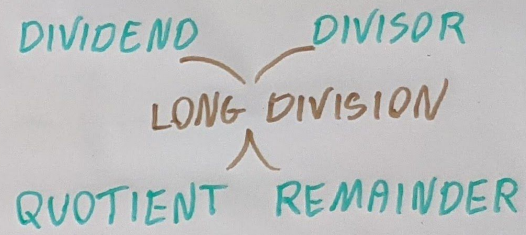 DIVIDEND DIVISOR
LONG DIVISION
QUOTIENT REMAINDER